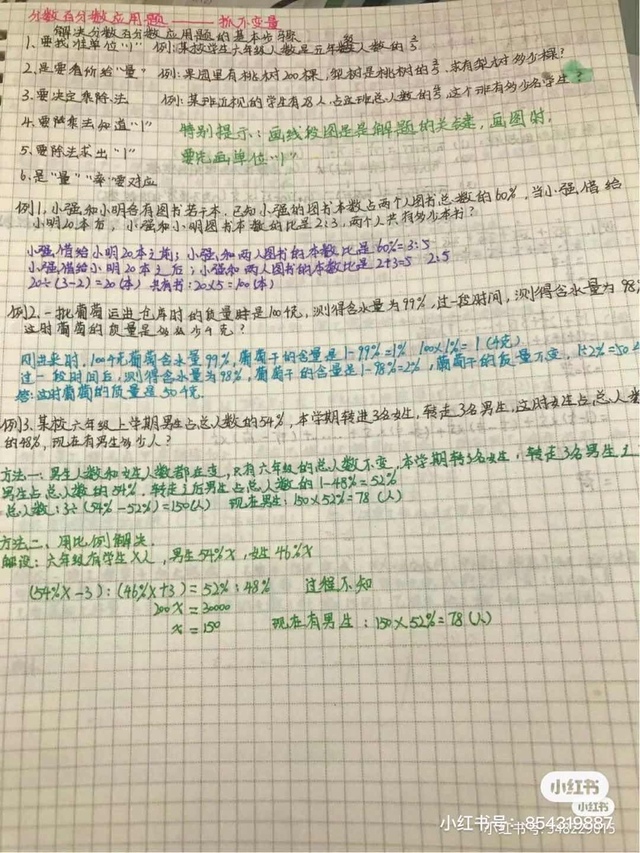 分数百分数应用题——抓不变量
解决分数百分数应用题的基本步骤
1、要找准单位"1" 例:某校学生六年级人数是五年级人数的
2、是要看所给"量" 例:果园里有桃树200棵,梨树是桃树的 求有梨树多少棵?
3、要决定乘除法 例:某班近视的学生有28人,占这班总人数的 这个班有多少名学生?
4、要除乘法知道"1" 特别提示:画线段图是解题的关键,画图时,
5、要除法求出"1" 要先画单位"1"
6、是"量""率"要对应
例1、小强和小明各有图书若干本,已知小强的图书本数占两个人图书总数的60%,当小强借给
小明20本后,小强和小明图书本数的比是2:3,两个人共有多少本书?
小强借给小明20本之前:小强和两人图书的本数比是60%=3:5
小强借给小明20本之后:小强和两人图书的本数比是2+3=5 2:5
20÷(3-2)=20(本) 共有书:20×5=100(本)
例2、一批葡萄运进仓库时的质量是100千克,测得含水量为99%,过一段时间,测得含水量为98%
这时葡萄的质量是多少千克?
刚进来时,100千克葡萄含水量99%,葡萄干的含量是1-99%=1% 100×1%=1(千克)
过一段时间后,测得含水量为98%,葡萄干的含量是1-98%=2%,葡萄干的质量不变,1÷2%=50
答:这时葡萄的质量是50千克.
例3、某校六年级上学期男生占总人数的54%,本学期转进3名女生,转走3名男生,这时女生占总人数
的48%,现在有男生多少人?
方法一:男生人数和女生人数都在变,只有六年级的总人数不变,本学期转3名女生,转走3名男生之
男生占总人数的54%,转走之后男生占总人数的1-48%=52%
总人数:3÷(54%-52%)=150(人) 现在男生:150×52%=78(人)
方法二、用比例解决.
解设:六年级有学生X人,男生54%X,女生46%X
(54%X-3):(46%X+3)=52%:48% 过程不知
200X=30000
X=150 现在有男生:150×52%=78(人)
小红书
小红书
小红书号:854319887
小红书号:548229815